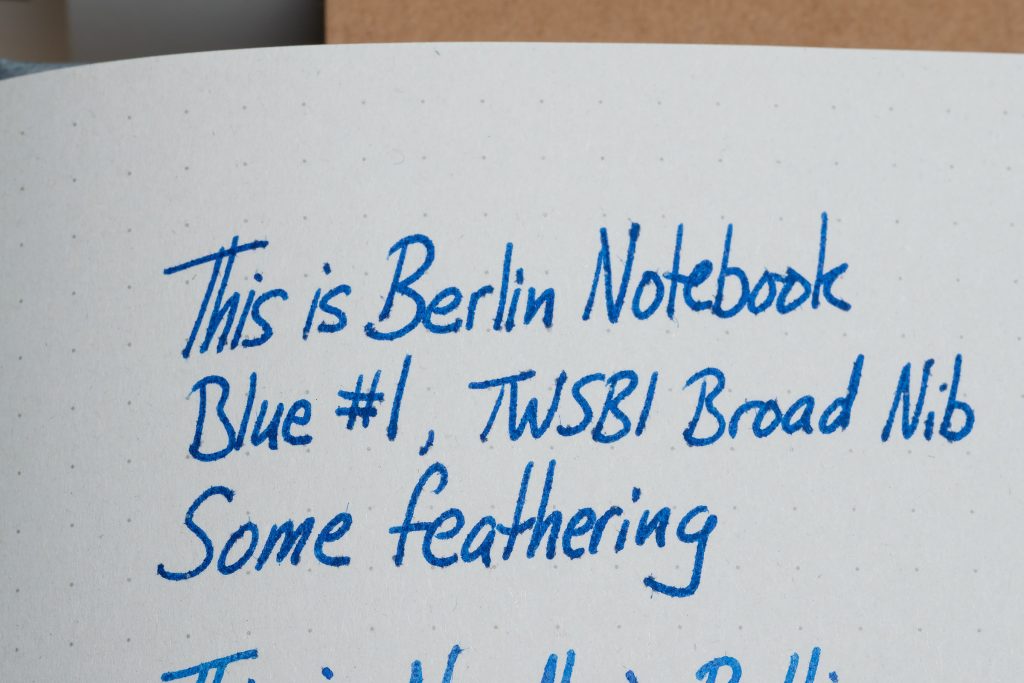 This is Berlin Notebook
Blue #1, TWSBI Broad Nib
Some feathering
This is